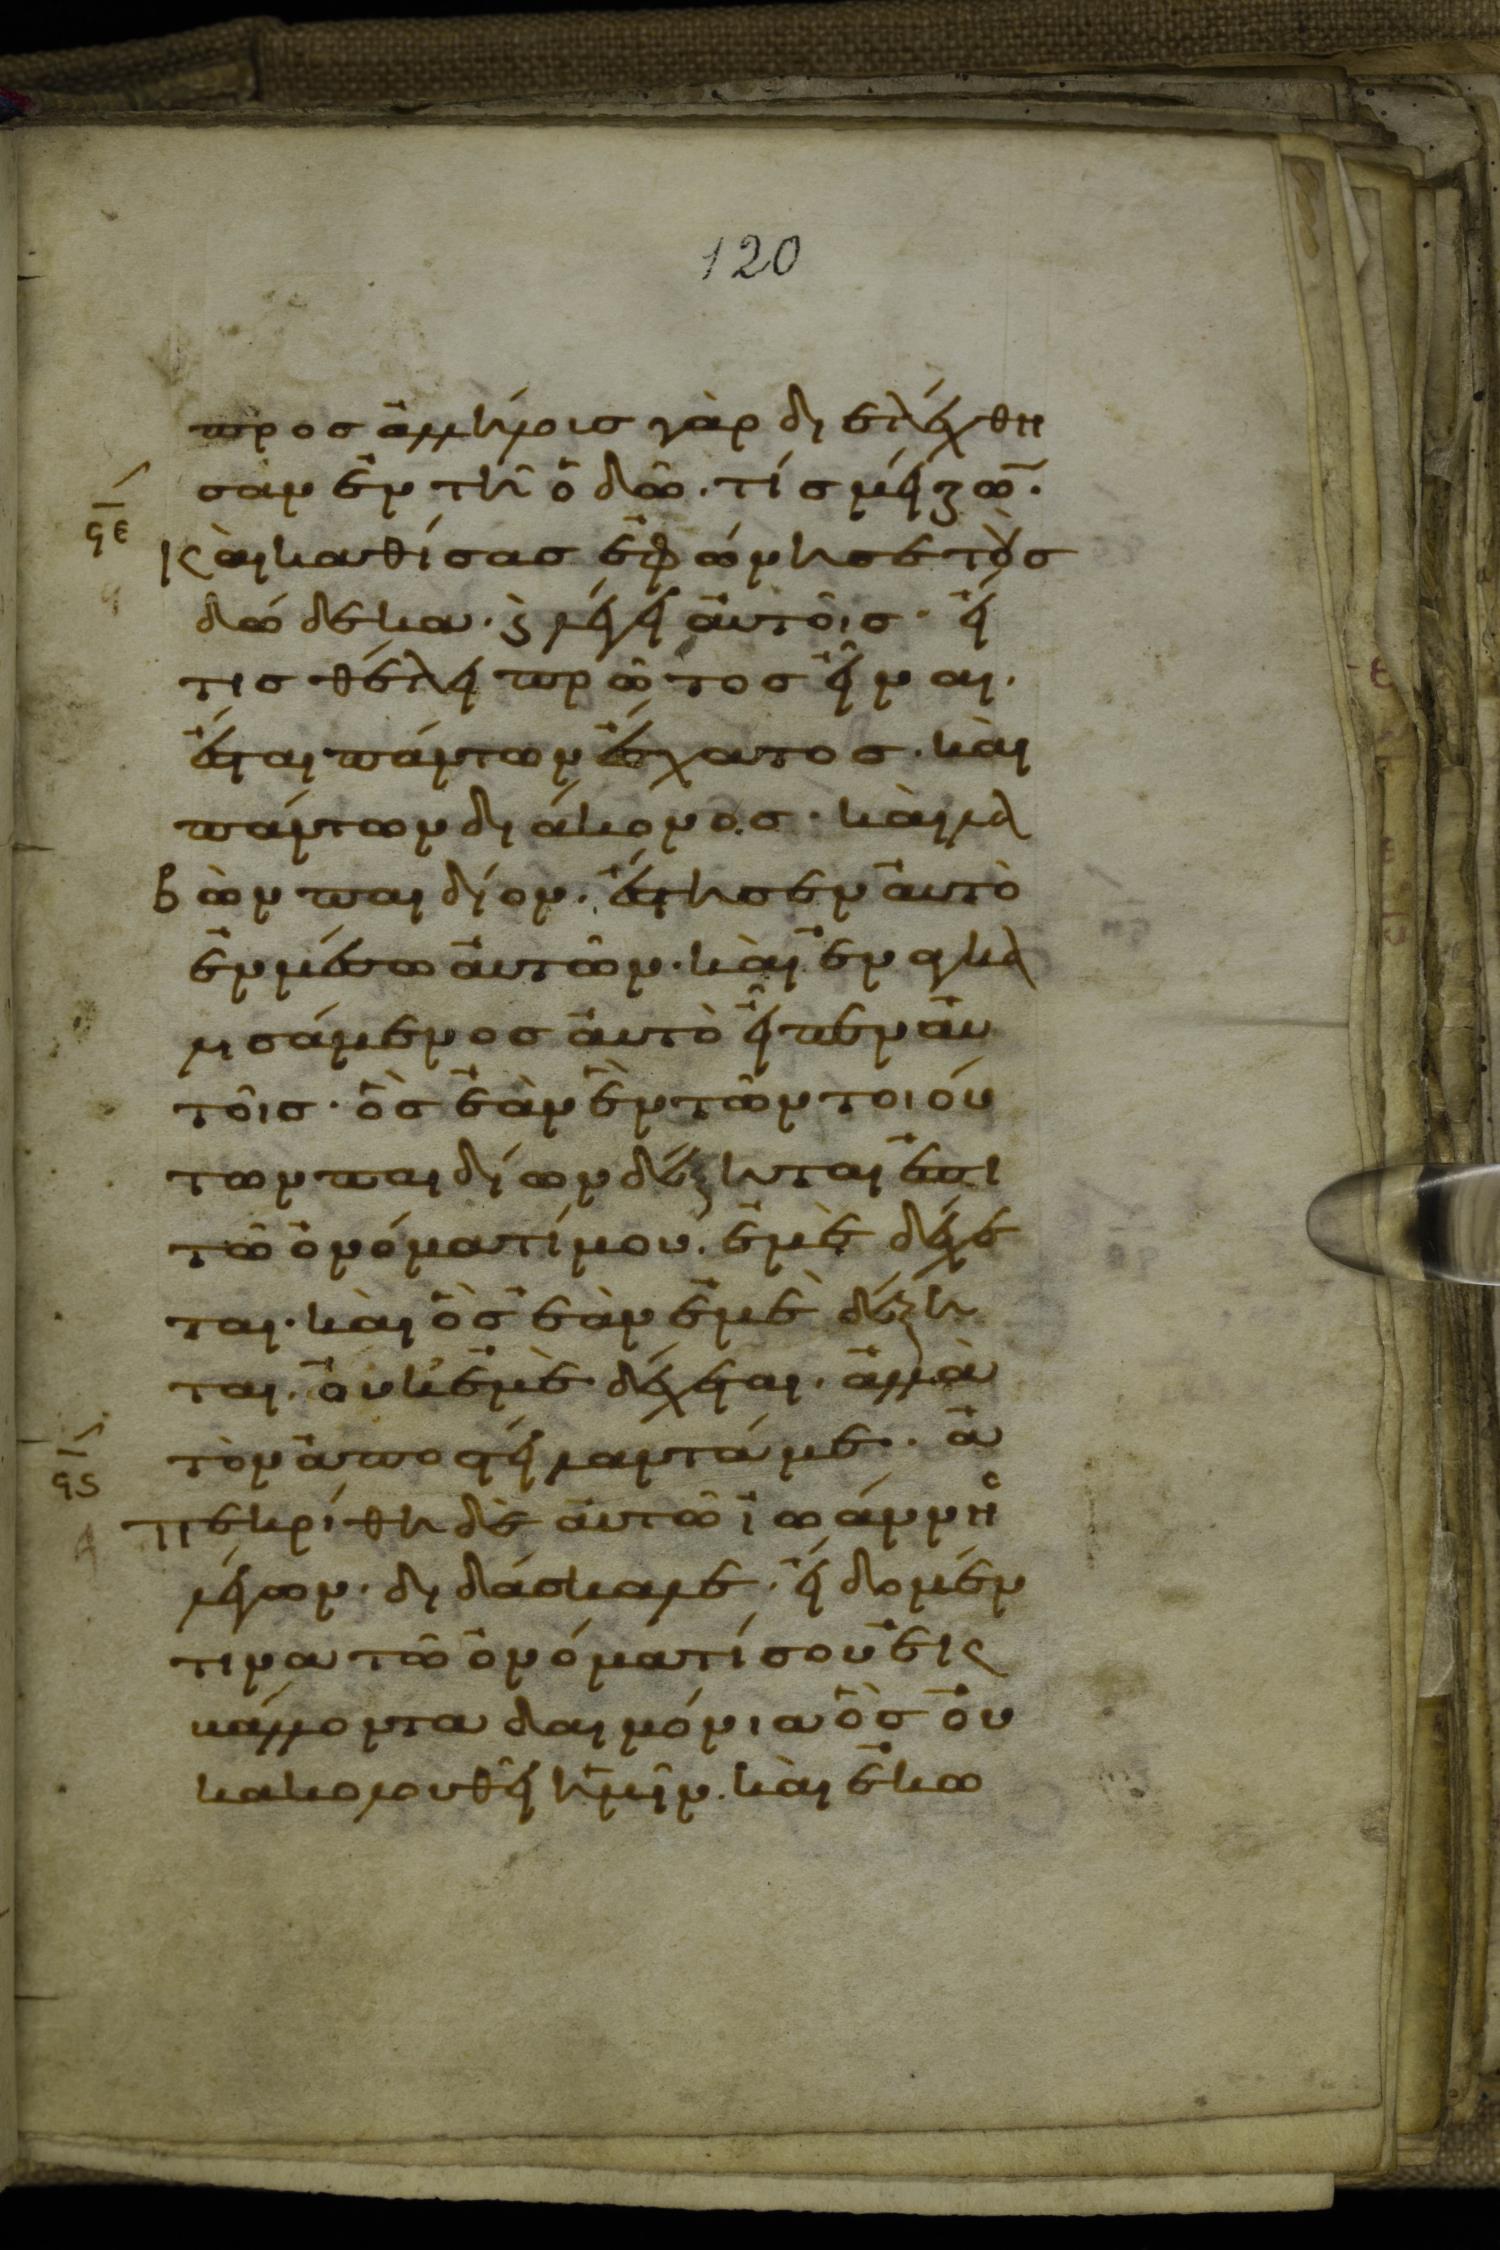 120
προσ ἀλλήλοισ γὰρ διελέχθη
σαν ἐν τῆ ὁδῶ. τίσ μείζω̅.
ϟε καὶ καθίσασ ἐφώνησε τοὺσ
δώδεκα. ϗ λέγει αὐτοῖσ. εἴ
τισ θέλει πρῶτοσ εἶναι.
ἔσται πάντων ἔσχατοσ. καὶ
πάντων διάκονοσ. καὶ λα
βὼν παιδίον. ἔστησεν αὐτὸ
ἐν μέσω αὐτῶν. καὶ ἐναγκα
λισάμενοσ αὐτὸ εἶπεν αὐ
τοῖσ. ὃσ ἐὰν ἓν τῶν τοιού
των παιδίων δέξηται ἐπι
τῶ ὀνόματί μου. ἐμὲ δέχε
ται. καὶ ὃσ ἐὰν ἐμὲ δέξη
ται. οὐκ ἐμὲ δέχεται. ἀλλὰ
τὸν ἀποστείλαντά με. ἀ
ϟϛ πεκρίθη δὲ αὐτῶ ἰωάννησ
λέγων. διδάσκαλε. εἴδομέν
τινα τῶ ὀνόματί σου ἐκ
βάλλοντα δαιμόνια ὃσ οὐ
κ ἀκολουθεῖ ἡμῖν. καὶ ἐκω